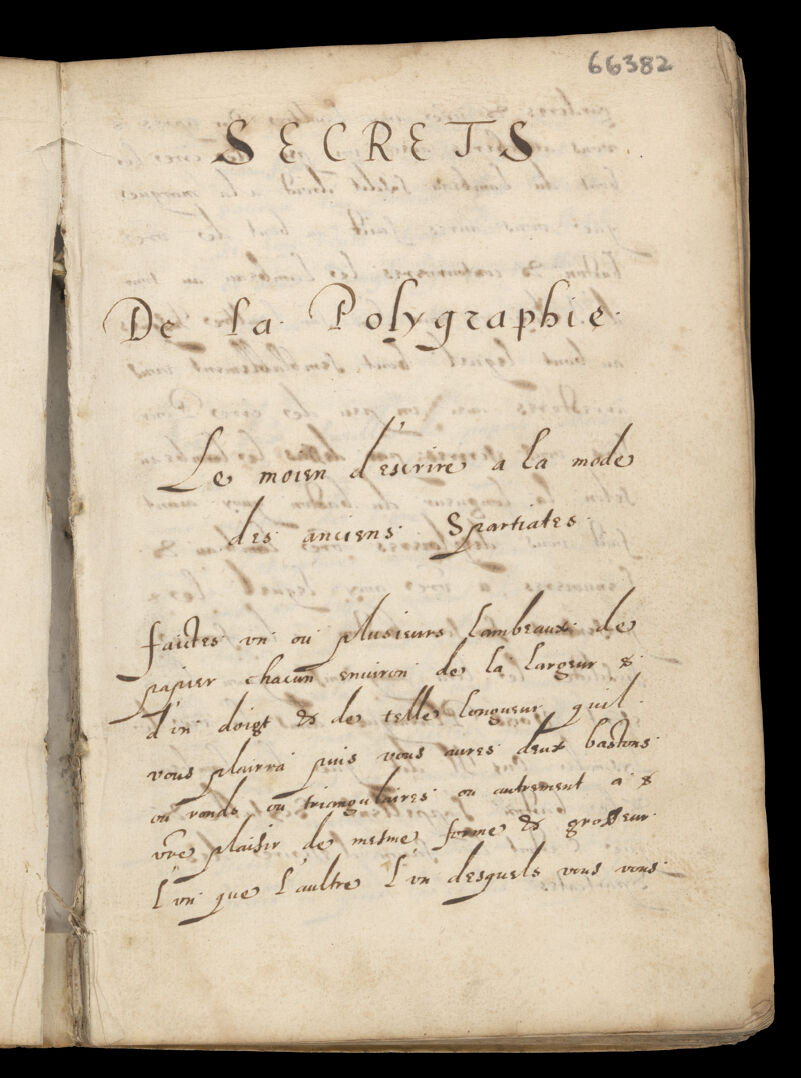 66382
SECRETS
De la Polygraphie
Le moien d'escrire a la mode
des anciens Spartiates
faictes vn ou plusieurs lambeaux de
papier chacun enuiron de la largeur
d'vn doigt & de telle longueur quil
vous plairra puis vous aures deux bastons
ou ronds ou triangulaires ou autrement a
vr̃e plaisir de mesme forme & grosseur
l'vn que l'aultre l'vn desquels vous vous